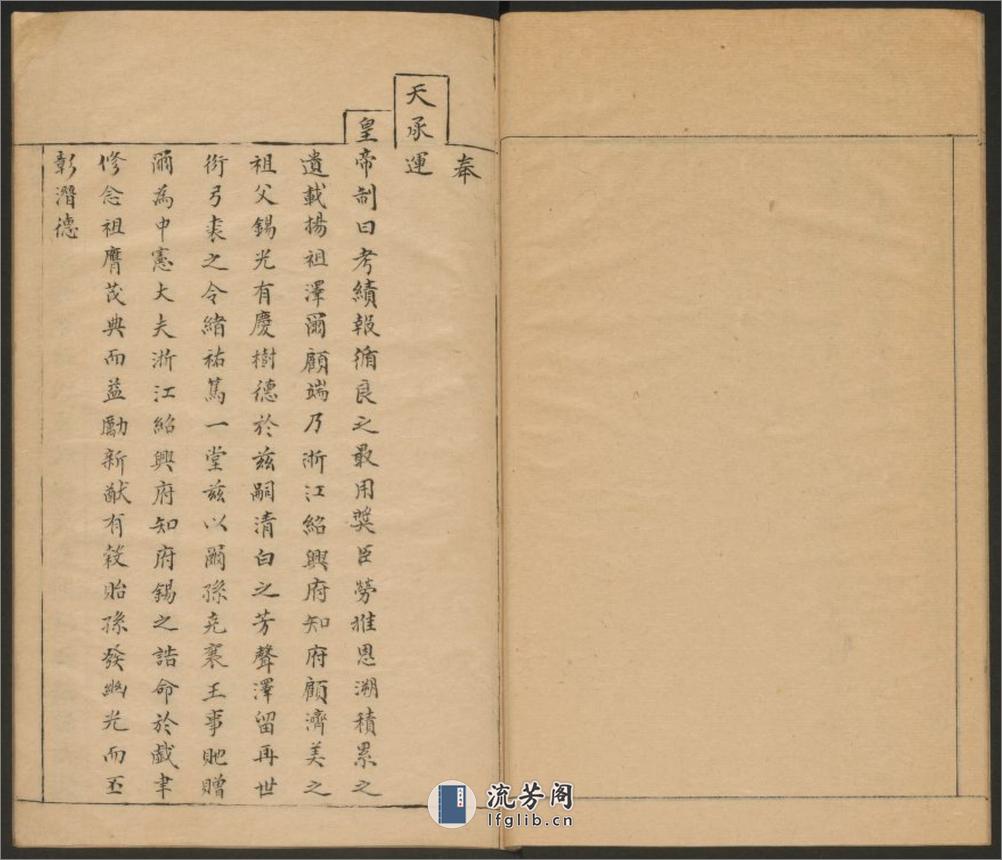 奉
天承運
皇帝制曰考績報循良之最用奨臣勞推恩溯積累之
遺載揚祖澤爾顧端乃浙江紹興府知府顧濟美之
祖父錫光有慶樹德於兹嗣清白之芳聲澤留再世
衍弓裘之令緒祐篤一堂兹以爾孫克襄王事貤贈
爾為中憲大夫浙江紹興府知府錫之誥命於戲聿
修念祖膺茂典而益勵新猷有穀貽孫發幽光而丕
彰潛德
流芳阁
lfglib.cn